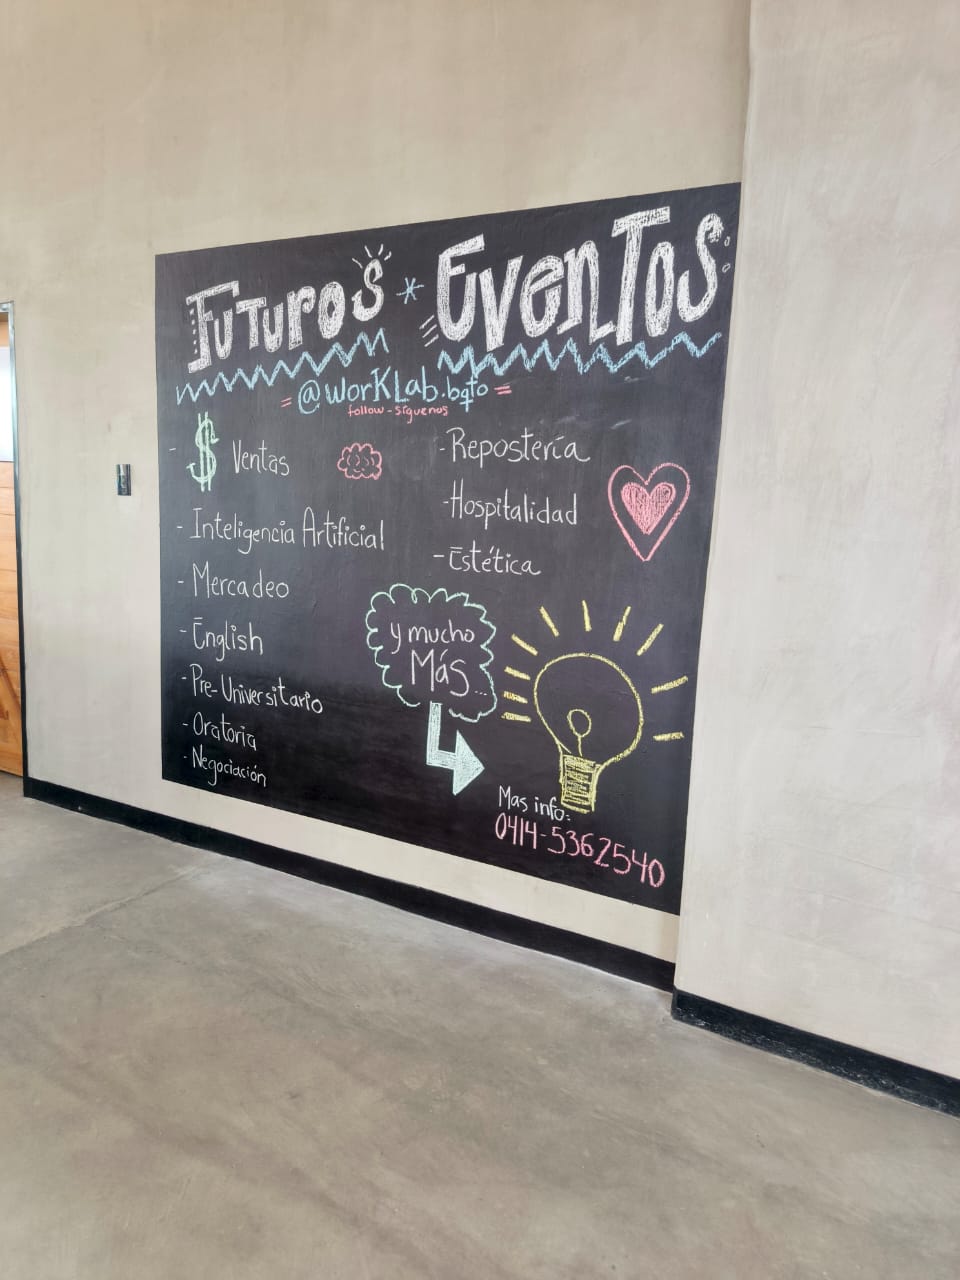 Futuros * Eventos
= @workLab.bqto =
follow - síguenos
- $ Ventas
- Inteligencia Artificial
- Mercadeo
- English
- Pre-Universitario
- Oratoria
- Negociación
- Repostería
- Hospitalidad
- Estética
y mucho
Más...
Mas info:
0414-5362540